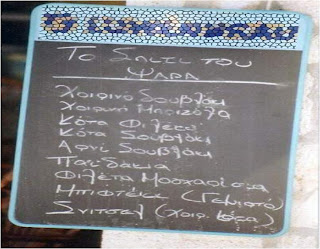 Το Σπιτι του
ΨΑΡΑ
Χοιρινό Σουβλάκι
Χοιρινή Μπριζόλα
Κότα Φιλέτο
Κότα Σουβλάκι
Αρνί Σουβλάκι
Παϊδάκια
Φιλέτα Μοσχαρίσια
Μπιφτέκι (Γεμιστό)
Σνίτσελ (Χοιρ. Κότα)